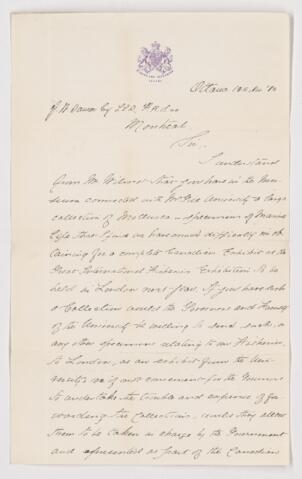 Ottawa
J W Dawson Esq LLD. F.R.S &c
Montreal.
Sir,
I understand
from Mr Wilmot that you have in the Museum
connected with McGill University a large
collection of Mollusca – specimens of Marine
life that I find we have annual difficulty in obtaining
for a complete Canadian Exhibit at the
Great International Fisheries Exhibition to be
held in London next year. If you have such
a Collection would the Governors and Faculty
of the University be willing to send such, or
any other specimens relating to our Fisheries,
to London, as an exhibit from the University
or if not convenient for the Governors
to undertake the trouble and expense of forwarding
the Collection, would they allow
them to be taken in charge by the Government
and represented as part of the Canadian